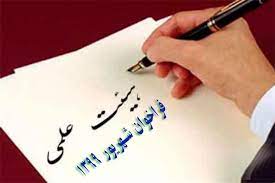 هیئت علمی
فراخوان شهریور ۱۳۹۹